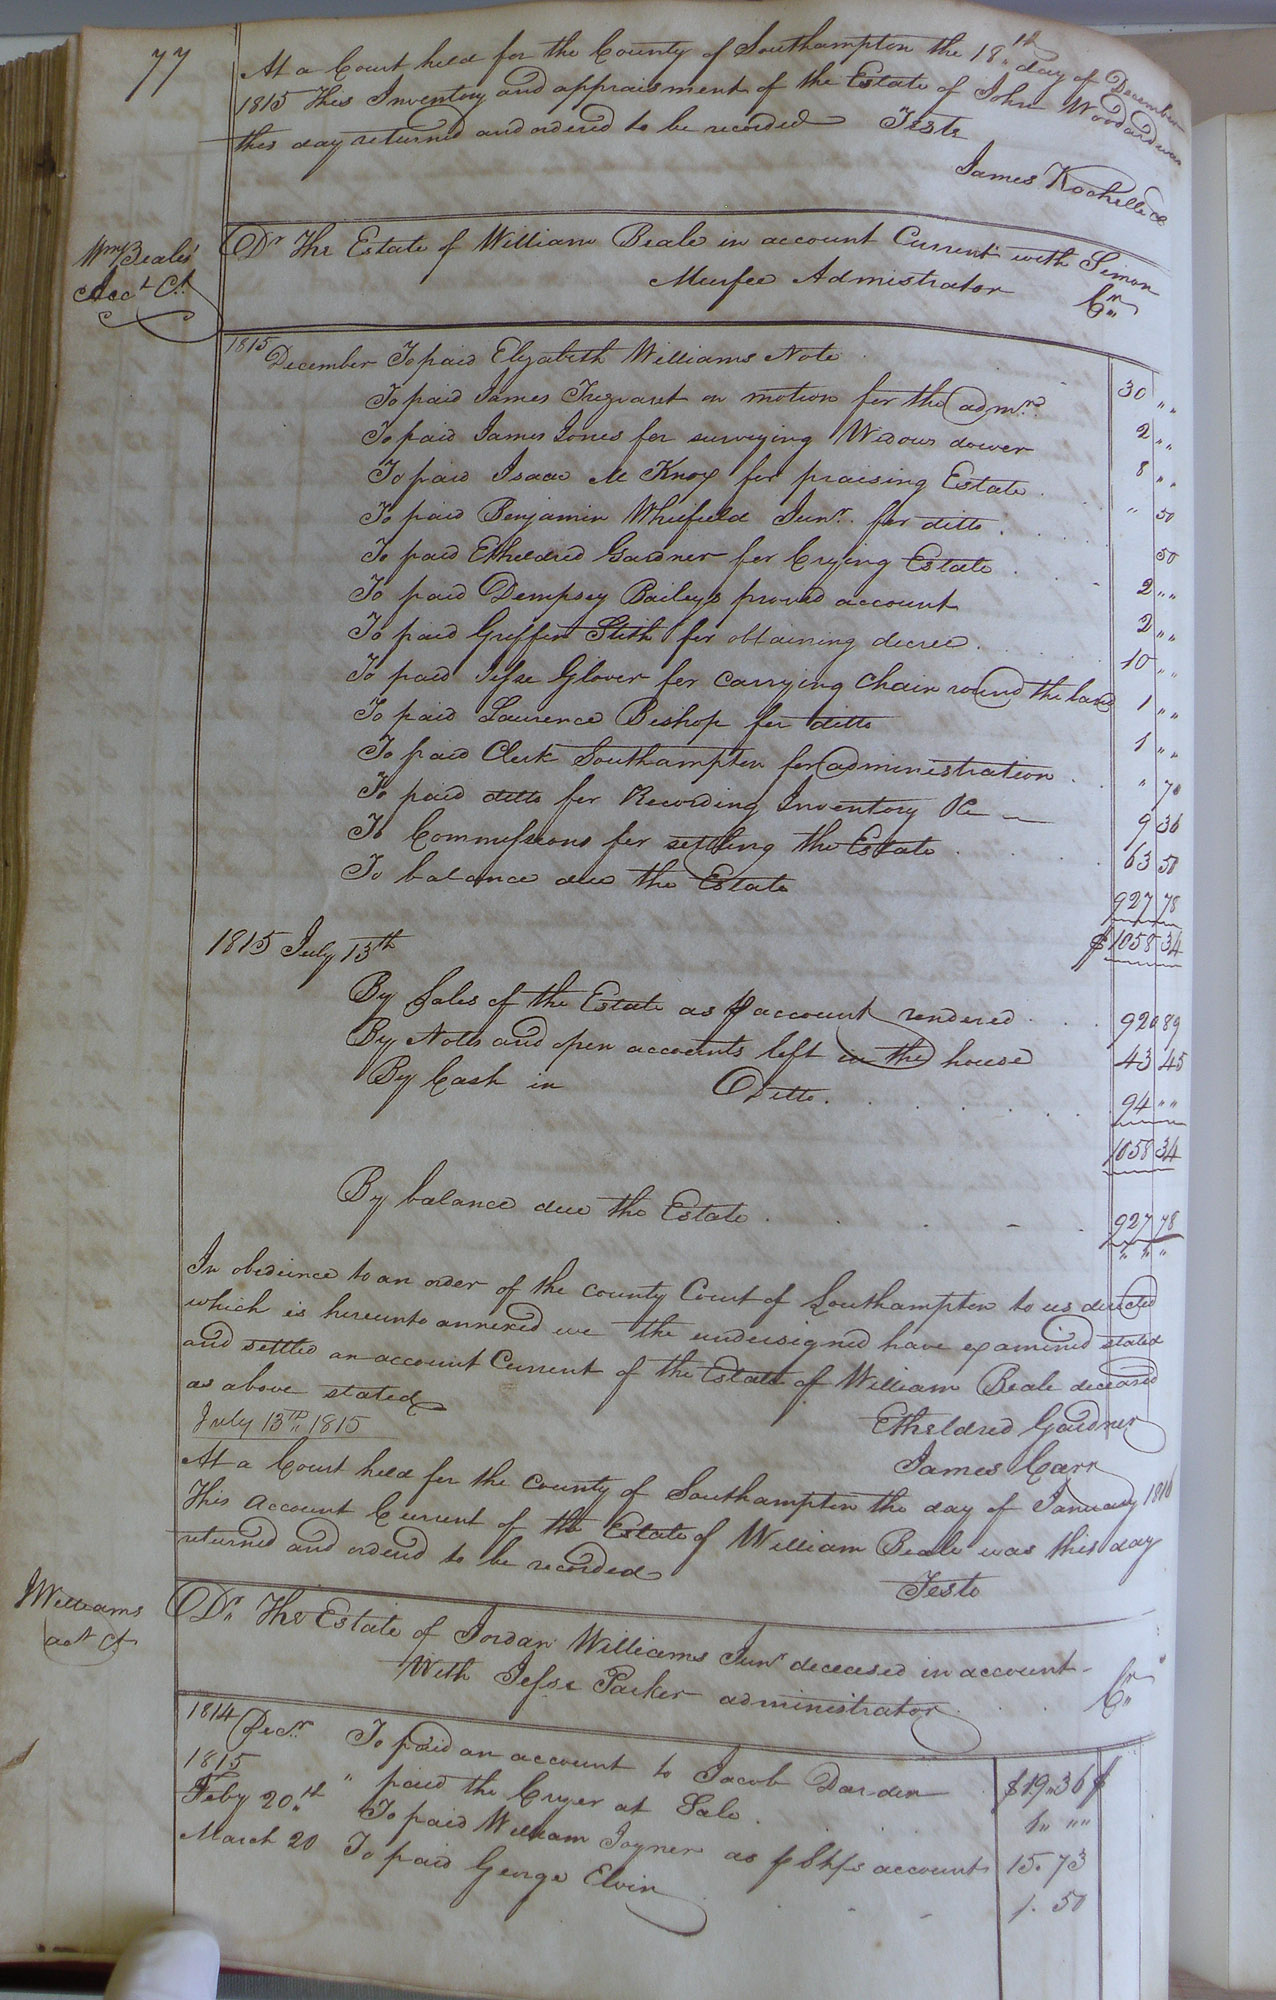 77
At a Court held for the County of Southampton the 18th day of December
1815 This Inventory and appraisment of the Estate of John Woodard was
this day returned and ordered to be recorded Teste
James Rochelle Cc
Wm Beale's
Acct Ct
Dr The Estate of William Beale in account Current with Simon
Murfee Admistrator Cr
1815
December To paid Elizabeth Williams Note 30 " "
To paid James Trezvant on motion for the adm 2 " "
To paid James Jones for surveying Widows dower 8 " "
To paid Isaac M Knox for praising Estate " 50
To paid Benjamin Whitfield Junr. for ditto 50
To paid Etheldred Gardner for Crying Estate 2 " "
To paid Dempsey Baileys proved account 2 " "
To paid Griffin Stith for obtaining decree 10 "
To paid Jesse Glover for carrying chain round the land 1 " "
To paid Laurence Bishop for ditto 1 " "
To paid Clerk Southampton for administration " 70
To paid ditto for Recording Inventory &c 9 36
To Commissions for settling the Estate 63 50
To balance due the Estate 927 78
$ 1058 34
1815 July 13th
By Sales of the Estate as p account rendered 920 89
By Notes and open accounts left in the house 43 45
By Cash in Ditto 94 " "
1058 34
By balance due the Estate 927 78
In obedience to an order of the county Court of Southampton to us directed
which is hereunto annexed we the undersigned have examined stated
and settled an account Current of the Estate of William Beale deceased
as above stated
Etheldred Gardner
July 13th 1815
James Carr
At a Court held for the county of Southampton the day of January 1816
This Account Current of the Estate of William Beale was this day
returned and ordered to be recorded
Teste
J Williams
act Ct
Dr. The Estate of Jordan Williams Junr deceased in account
With Jesse Parker administrator Cr
1814 Decr. To paid an account to Jacob Darden $19 " 36 $
1815 " paid the Cryer at Sale 1 " " "
Feby 20th To paid William Joyner as p account 15. 73
March 20 To paid George Elvin 1. 50